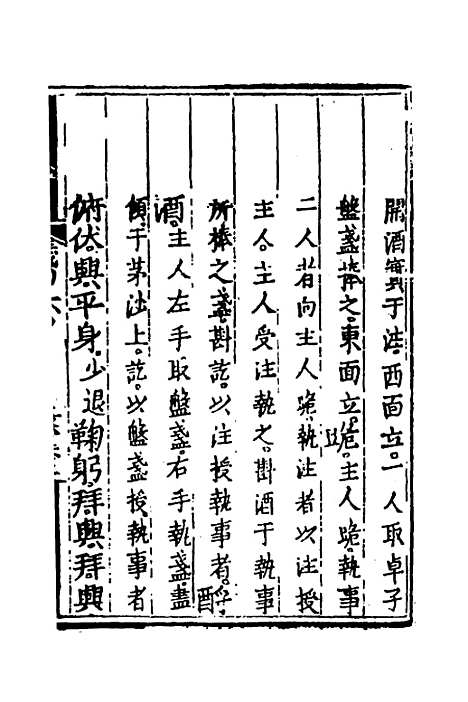 開酒實于注西面立一人取卓子
盤盞捧之東面立定主人跪執事
二人者向主人跪執注者以注授
主人主人受注執之斟酒于執事
所捧之盞斟訖以注授執事者
酒主人左手取盤盞右手執盞盡
傾于茅沙上訖以盤盞授執事者
俯伏興平身少退鞠躬拜興拜興